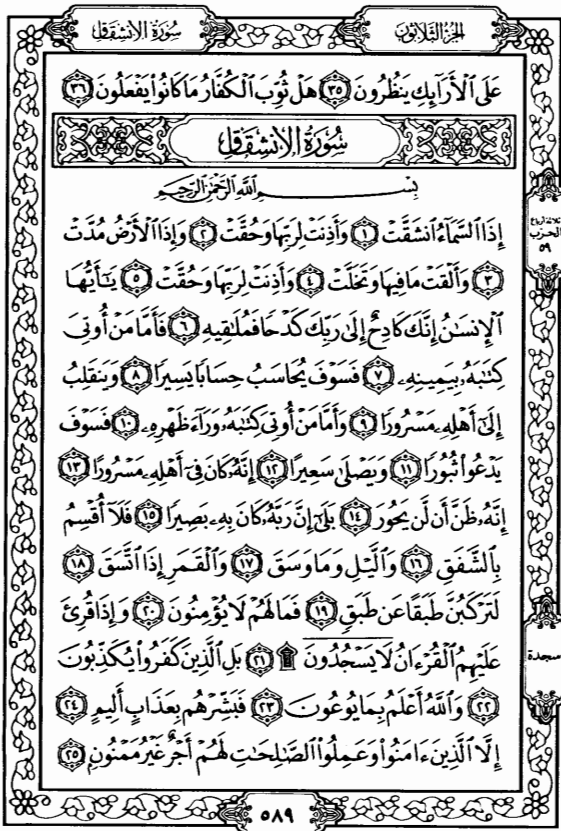 سُورَةُ الانشِقَاقِ
الجُزءُ الثَّلَاثُونَ
عَلَى ٱلْأَرَآئِكِ يَنظُرُونَ ٣٥ هَلْ ثُوِّبَ ٱلْكُفَّارُ مَا كَانُوا۟ يَفْعَلُونَ ٣٦
سُورَةُ الانشِقَاقِ
بِسْمِ ٱللَّهِ ٱلرَّحْمَٰنِ ٱلرَّحِيمِ
إِذَا ٱلسَّمَآءُ ٱنشَقَّتْ ١ وَأَذِنَتْ لِرَبِّهَا وَحُقَّتْ ٢ وَإِذَا ٱلْأَرْضُ مُدَّتْ
٣ وَأَلْقَتْ مَا فِيهَا وَتَخَلَّتْ ٤ وَأَذِنَتْ لِرَبِّهَا وَحُقَّتْ ٥ يَٰٓأَيُّهَا
ٱلْإِنسَٰنُ إِنَّكَ كَادِحٌ إِلَىٰ رَبِّكَ كَدْحًا فَمُلَٰقِيهِ ٦ فَأَمَّا مَنْ أُوتِىَ
كِتَٰبَهُۥ بِيَمِينِهِۦ ٧ فَسَوْفَ يُحَاسَبُ حِسَابًا يَسِيرًا ٨ وَيَنقَلِبُ
إِلَىٰٓ أَهْلِهِۦ مَسْرُورًا ٩ وَأَمَّا مَنْ أُوتِىَ كِتَٰبَهُۥ وَرَآءَ ظَهْرِهِۦ ١٠ فَسَوْفَ
يَدْعُوا۟ ثُبُورًا ١١ وَيَصْلَىٰ سَعِيرًا ١٢ إِنَّهُۥ كَانَ فِىٓ أَهْلِهِۦ مَسْرُورًا ١٣
إِنَّهُۥ ظَنَّ أَن لَّن يَحُورَ ١٤ بَلَىٰٓ إِنَّ رَبَّهُۥ كَانَ بِهِۦ بَصِيرًا ١٥ فَلَآ أُقْسِمُ
بِٱلشَّفَقِ ١٦ وَٱلَّيْلِ وَمَا وَسَقَ ١٧ وَٱلْقَمَرِ إِذَا ٱتَّسَقَ ١٨
لَتَرْكَبُنَّ طَبَقًا عَن طَبَقٍ ١٩ فَمَا لَهُمْ لَا يُؤْمِنُونَ ٢٠ وَإِذَا قُرِئَ
عَلَيْهِمُ ٱلْقُرْءَانُ لَا يَسْجُدُونَ ۩ ٢١ بَلِ ٱلَّذِينَ كَفَرُوا۟ يُكَذِّبُونَ
٢٢ وَٱللَّهُ أَعْلَمُ بِمَا يُوعُونَ ٢٣ فَبَشِّرْهُم بِعَذَابٍ أَلِيمٍ ٢٤
إِلَّا ٱلَّذِينَ ءَامَنُوا۟ وَعَمِلُوا۟ ٱلصَّٰلِحَٰتِ لَهُمْ أَجْرٌ غَيْرُ مَمْنُونٍۭ ٢٥
ثلاثة أرباع
الحزب
٥٩
سجدة
٥٨٩